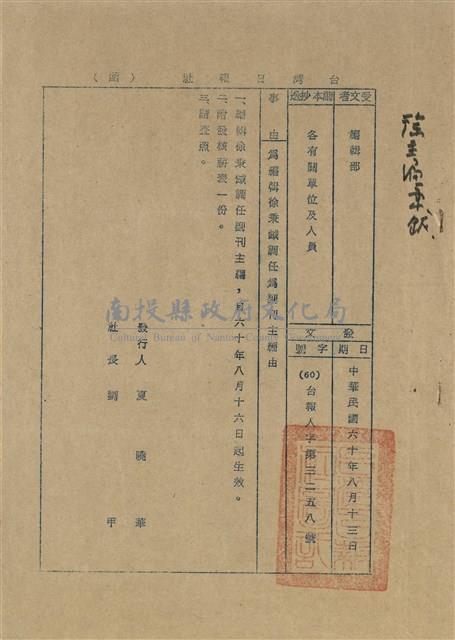 台灣日報社（函）
受文者
編輯部
副本抄送
各有關單位及人員
發文
日期
中華民國六十年八月十三日
字號
(60)台報人字第三二五八號
事由
為編輯徐秉鉞調任為副刊主編由
一、編輯徐秉鉞調任副刊主編，自六十年八月十六日起生效。
二、附發核薪表一份。
三、請查照。
發行人 夏曉華
社長 劉甲
南投縣政府文化局
Cultural Bureau of Nantou County Government